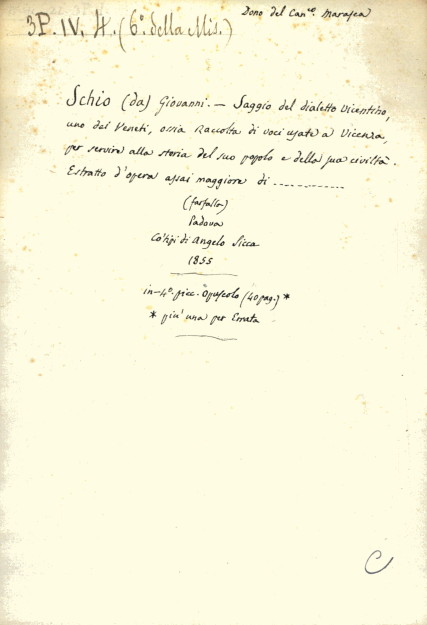 Dono del Can.co Marasca
3P. IV. 4. (6°. della Mis.)
Schio (da) Giovanni. — Saggio del dialetto vicentino,
uno dei Veneti, ossia Raccolta di voci usate a Vicenza,
per servire alla storia del suo popolo e della sua civiltà.
Estratto d'opera assai maggiore di ............
(farfalla)
Padova
Co' tipi di Angelo Sicca
1855
in-4°. picc. Opuscolo (40 pag.) *
* più una per Errata
C